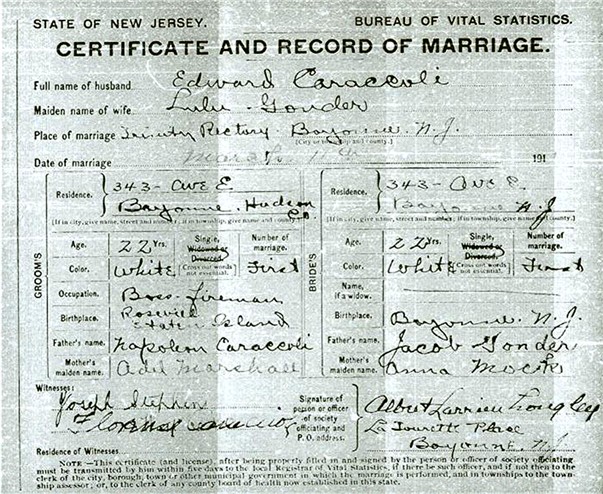 STATE OF NEW JERSEY. BUREAU OF VITAL STATISTICS.
CERTIFICATE AND RECORD OF MARRIAGE.
Full name of husband Edward Caraccoli
Maiden name of wife Lulu Gonder
Place of marriage Trinity Rectory Bayonne. N. J.
[City or township and county.]
Date of marriage March 191
GROOM'S
Residence. 343 - Ave E. Bayonne. Hudson Co.
[If in city, give name, street and number; if in township, give name and county.]
Age. 22 Yrs. Single, Widowed or Divorced. Number of marriage.
Color. White [Cross out words not essential.] First
Occupation. Boss-fireman
Birthplace. Rosevill Staten Island
Father's name Napoleon Caraccoli
Mother's maiden name. Marshall
BRIDE'S
Residence. 343 - Ave E. Bayonne N. J
[If in city, give name, street and number; if in township, give name and county.]
Age. 22 Yrs. Single, Widowed or Divorced. Number of marriage.
Color. White [Cross out words not essential.] First
Name, if a widow.
Birthplace. Bayonne. N. J.
Father's name Jacob Gonder
Mother's maiden name. Anna
Witnesses: Joseph Stephen
Florence
Signature of person or officer of society officiating and P. O. address. Albert Larrieu Longley
Place
Bayonne. N. J.
Residence of Witnesses
NOTE—This certificate (and license), after being properly filled in and signed by the person or officer of society officiating
must be transmitted by him within five days to the local Registrar of Vital Statistics, if there be such officer, and if not then to the
clerk of the city, borough, town or other municipal government in which the marriage is performed, and in townships to the town-
ship assessor; or, to the clerk of any county board of health now established in this state.